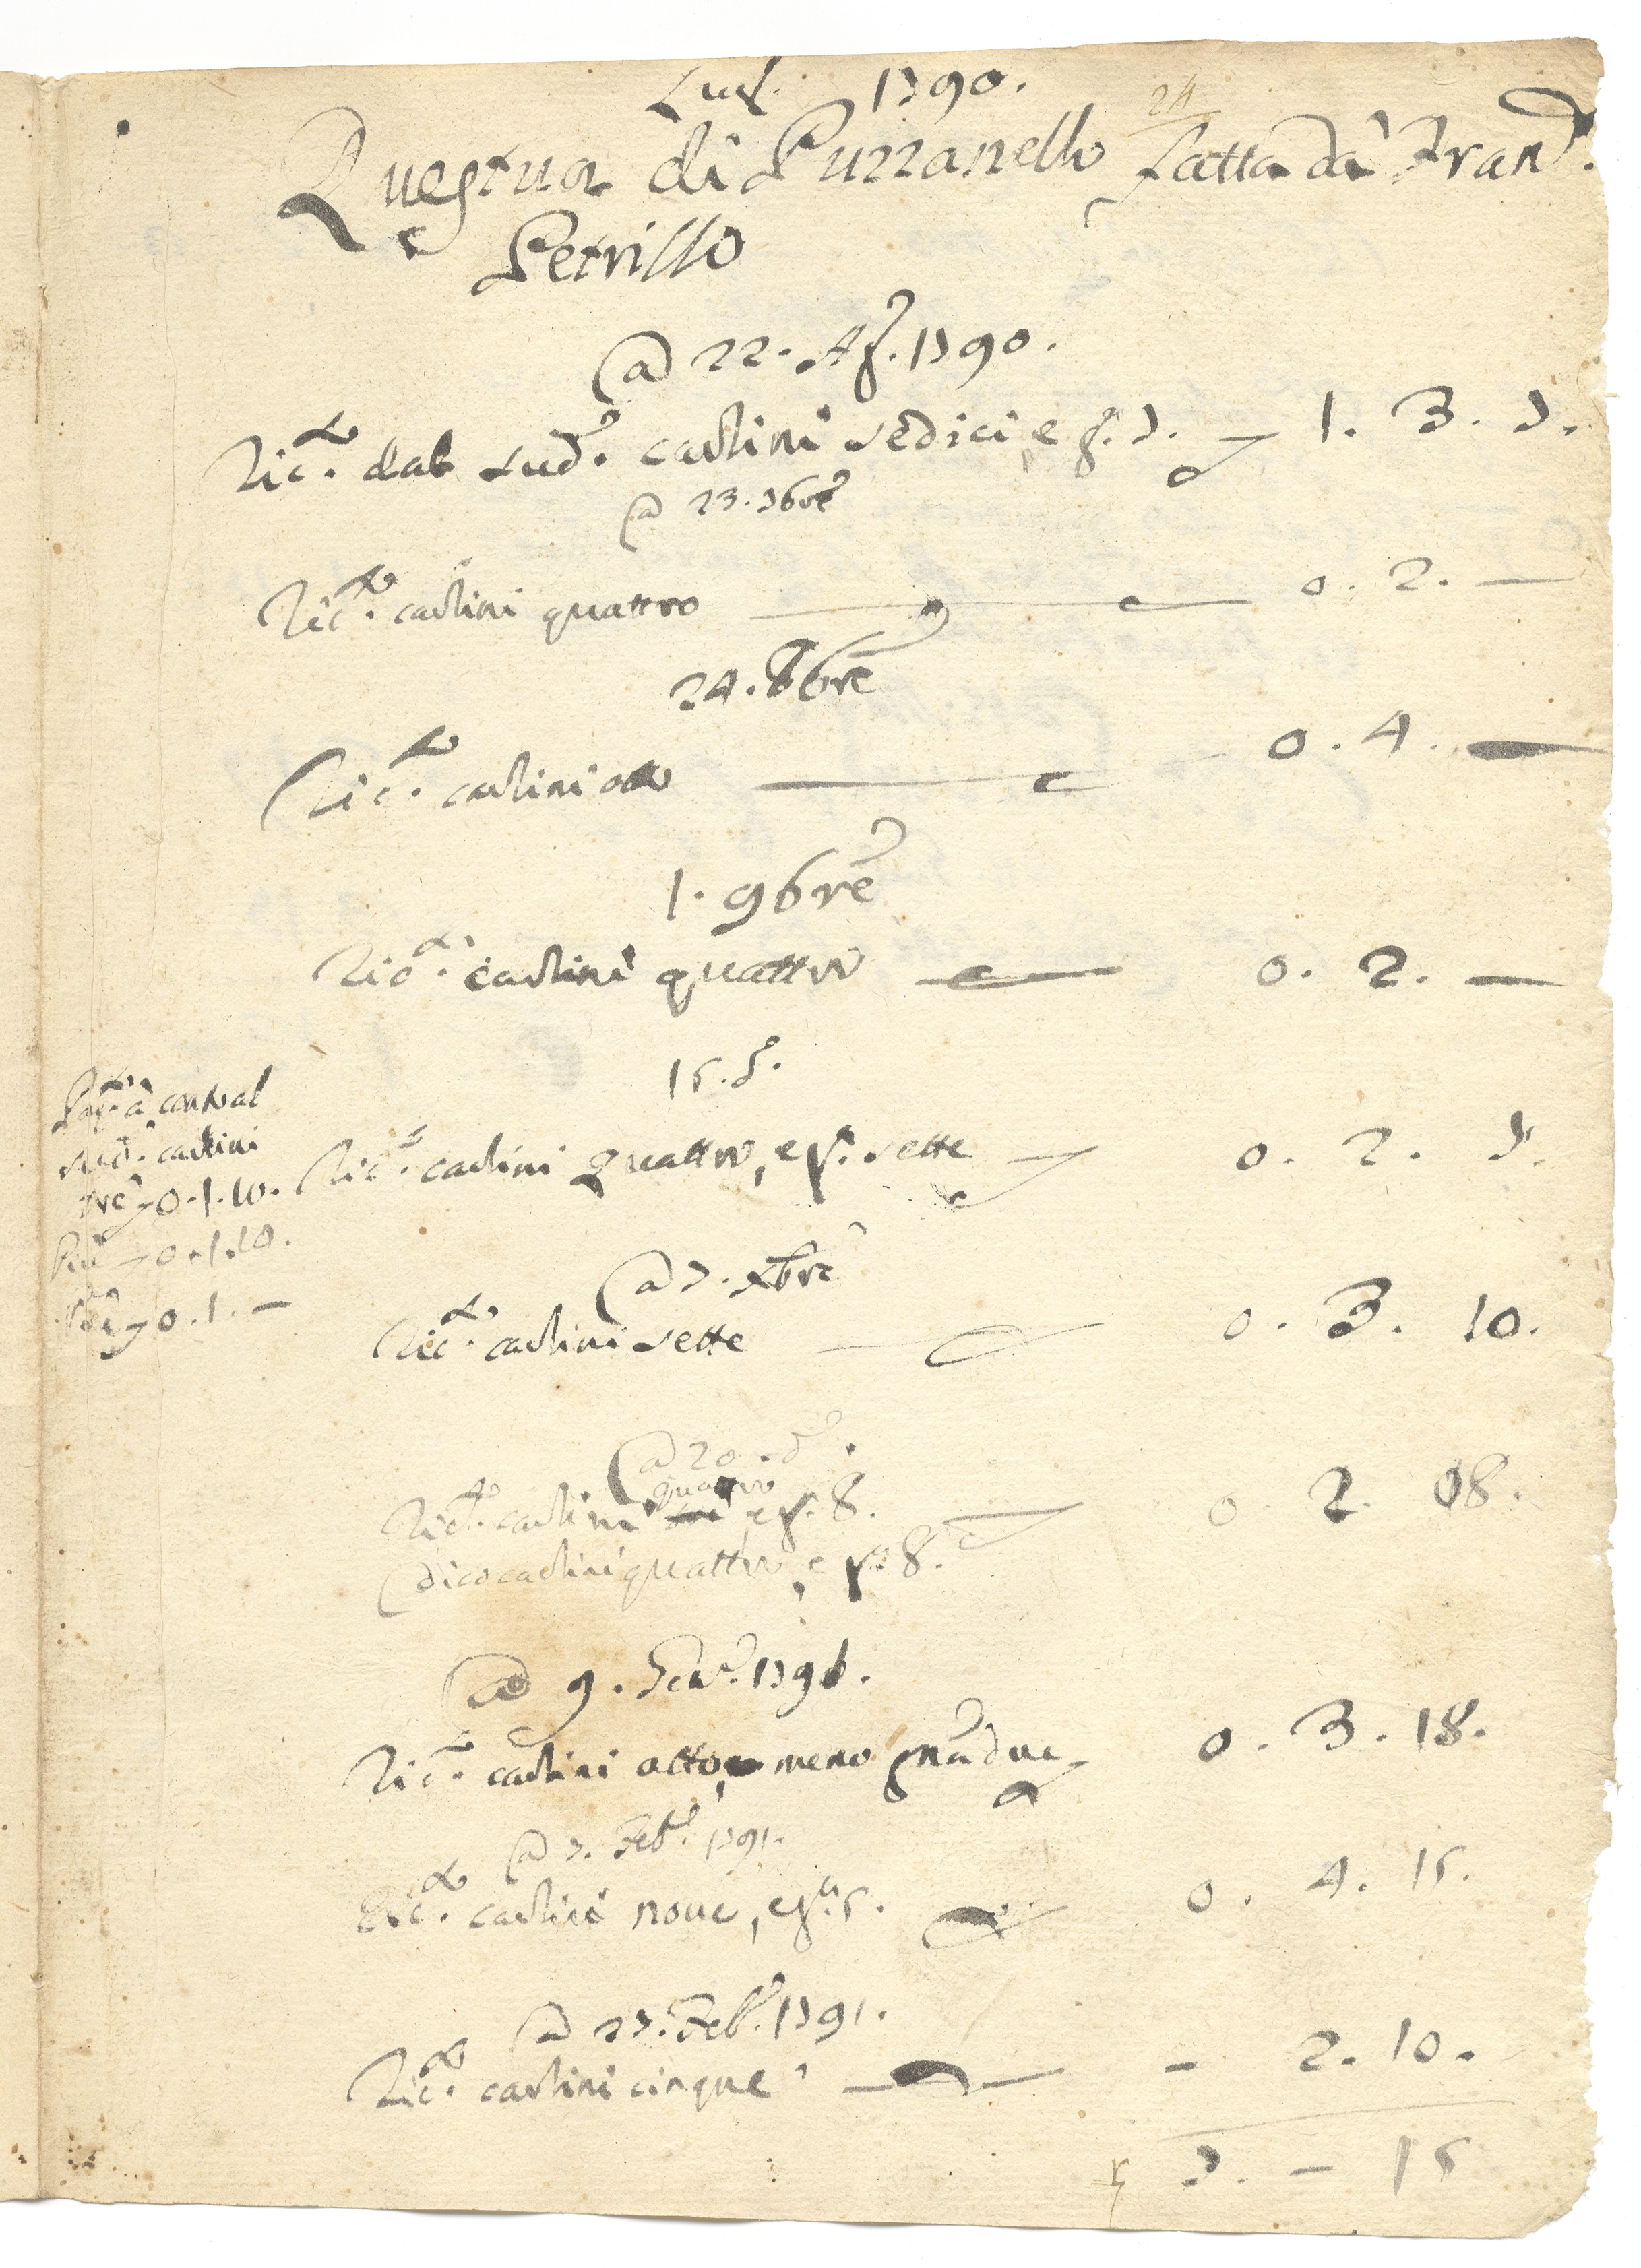 Lug.º 1790.
24
Questua di Puzzanello fatta dà Fran.º
Petrillo
@ 22. Ag.º 1790.
Ric.to dal sud.º carlini sedici, e g.ª 7. 1. 3. 7.
@ 23. 7bre
Ric.to carlini quattro 0. 2. —
24. 8bre
Ric.to carlini otto 0. 4. —
1. 9bre
Ric.to carlini quattro 0. 2. —
15. d.º
Ric.to carlini quattro, e g.ª sette 0. 2. 7.
Pag.to à conto al
sud.º carlini
tre 0. 1. 10.
Più 0. 1. 10.
Più 0. 1. —
@ 7. Xbre
Ric.to carlini sette 0. 3. 10.
@ 20. d.º
quattro
Ric.to carlini tre e g.ª 8. 0 2. 08.
dico carlini quattro, e g.ª 8.
@ 9. Gen.º 1791.
Ric.to carlini otto, meno grana due 0. 3. 18.
@ 7. Feb.º 1791.
Ric.to carlini nove, e g.ª 5. 0. 4. 15.
@ 27. Feb.º 1791.
Ric.to carlini cinque - 2. 10.
7. — 15